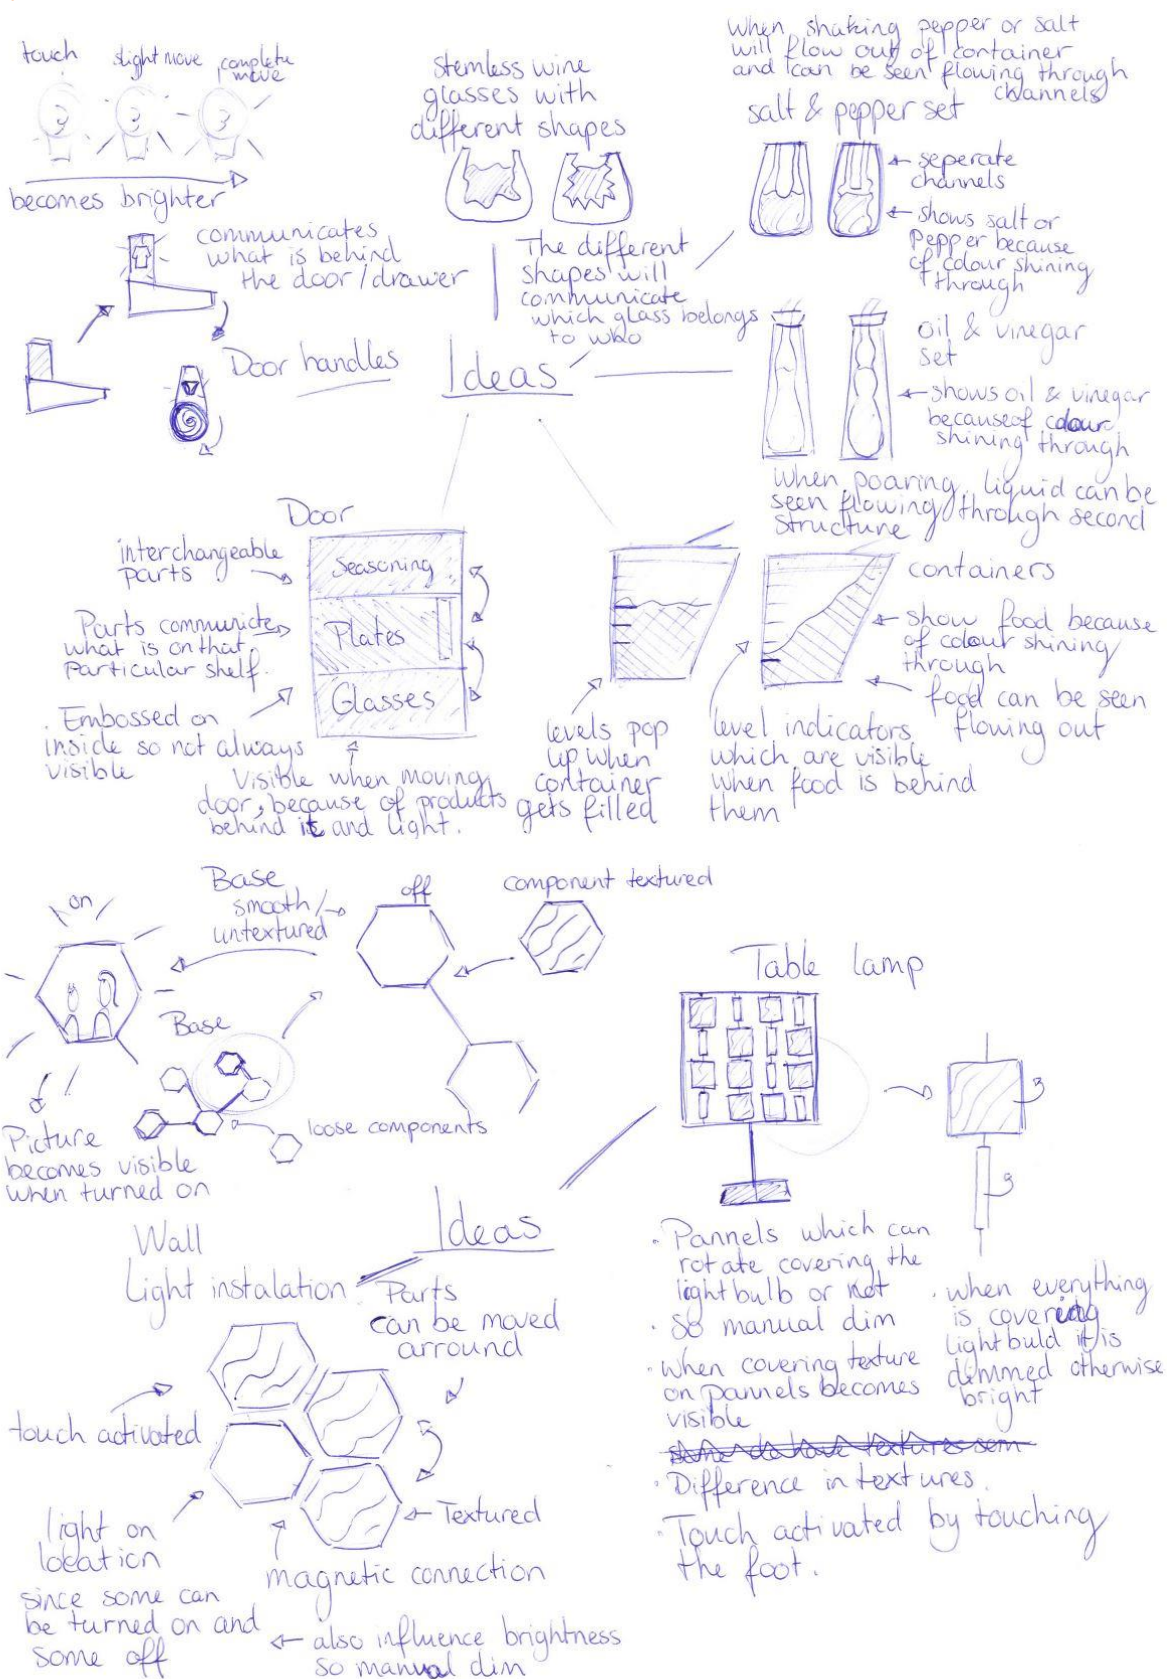 touch
slight move
complete
move
becomes brighter
communicates
what is behind
the door/drawer
Door handles
stemless wine
glasses with
different shapes
The different
shapes will
communicate
which glass belongs
to who
When shaking pepper or salt
will flow out of container
and can be seen flowing through
channels
salt & pepper set
seperate
channels
shows salt or
Pepper because
of colour shining
through
Ideas
oil & vinegar
set
shows oil & vinegar
because of colour
shining through
When poaring, liquid can be
seen flowing through second
structure
Door
interchangeable
parts
Seasoning
Plates
Glasses
Parts communicte
what is on that
particular shelf.
Embossed on
inside so not always
visible
Visible when moving
door, because of products
behind it and light.
containers
show food because
of colour shining
through
food can be seen
flowing out
levels pop
up when
container
gets filled
level indicators
which are visible
when food is behind
them
on
Base
smooth/
untextured
off
component textured
Base
loose components
Picture
becomes visible
when turned on
Table lamp
Ideas
Wall
Light instalation
Parts
can be moved
arround
touch activated
Textured
light on
location
since some can
be turned on and
some off
magnetic connection
also influence brightness
so manual dim
· Pannels which can
rotate covering the
lightbulb or not
· So manual dim
· when covering texture
on pannels becomes
visible
some do have textures som
· Difference in textures.
· Touch activated by touching
the foot.
· when everything
is covering
lightbuld it is
dimmed otherwise
bright